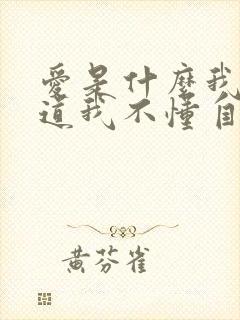 愛是什麼我
道我不懂自
黃芬雀